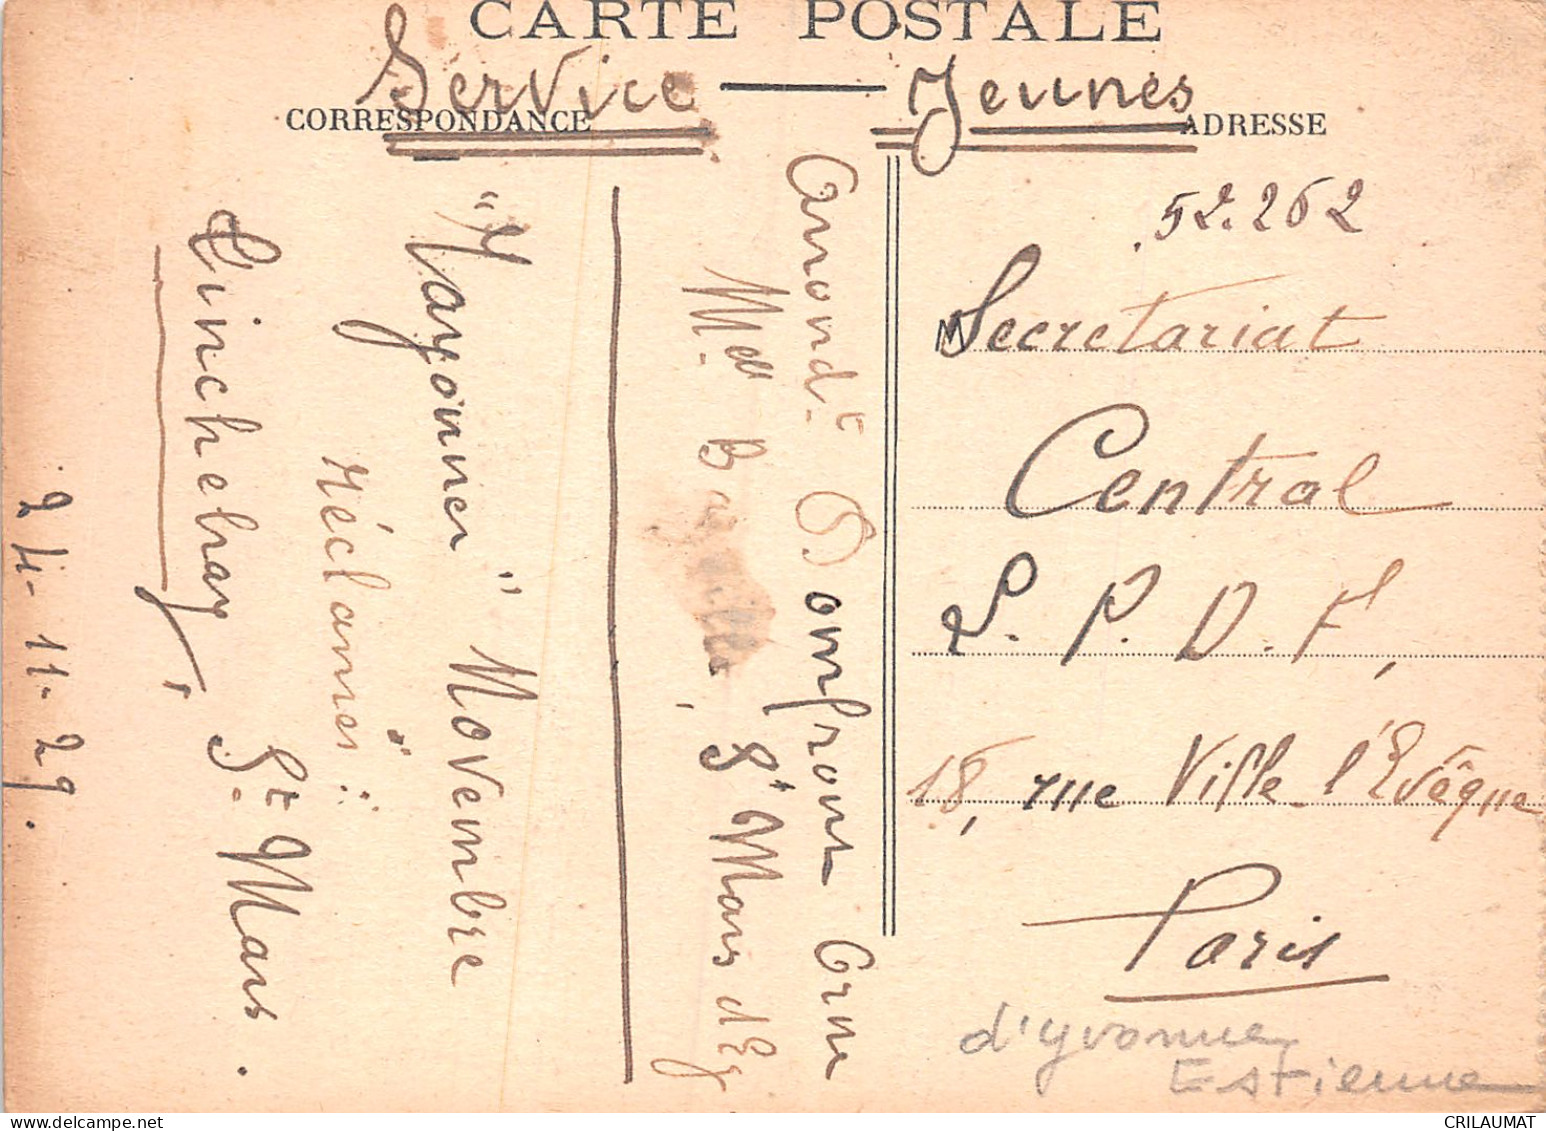 CARTE POSTALE
Service — Jeunes
CORRESPONDANCE
ADRESSE
Arrond.t Domfront Orne
Melle Bazeille, St Mars d'Eg
"Rayonner" Novembre
réclamer :
Tinchebray, St. Mars.
24-11-29.
52.262
Secretariat
Central
S. P. D. F,
18, rue Ville-l'Evêque
Paris
d'Yvonne
Estienne
CRILAUMAT